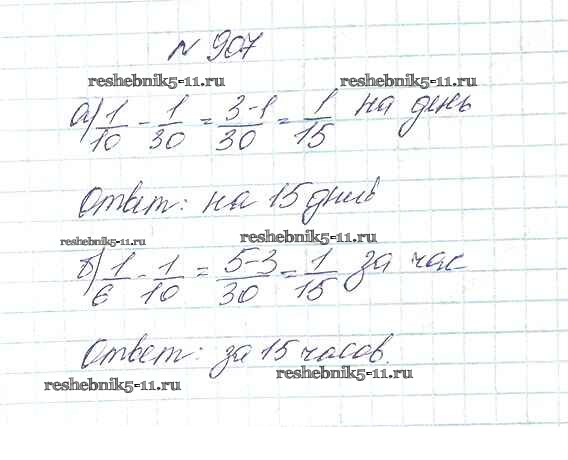 № 907
reshebnik5-11.ru reshebnik5-11.ru
а) 1/10 - 1/30 = 3-1/30 = 1/15 на день
Ответ: на 15 дней
reshebnik5-11.ru reshebnik5-11.ru
б) 1/6 - 1/10 = 5-3/30 = 1/15 за час
Ответ: за 15 часов.
reshebnik5-11.ru reshebnik5-11.ru